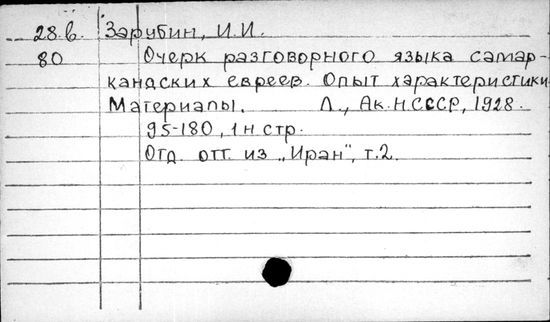 28.в. Зарубин, И.И.
80 Очерк разговорного языка самар-
кандских евреев. Опыт характеристики
Материалы. Л., Ак. Н СССР, 1928.
95-180, 1 н стр.
Отд. отт. из „Иран", т.2.